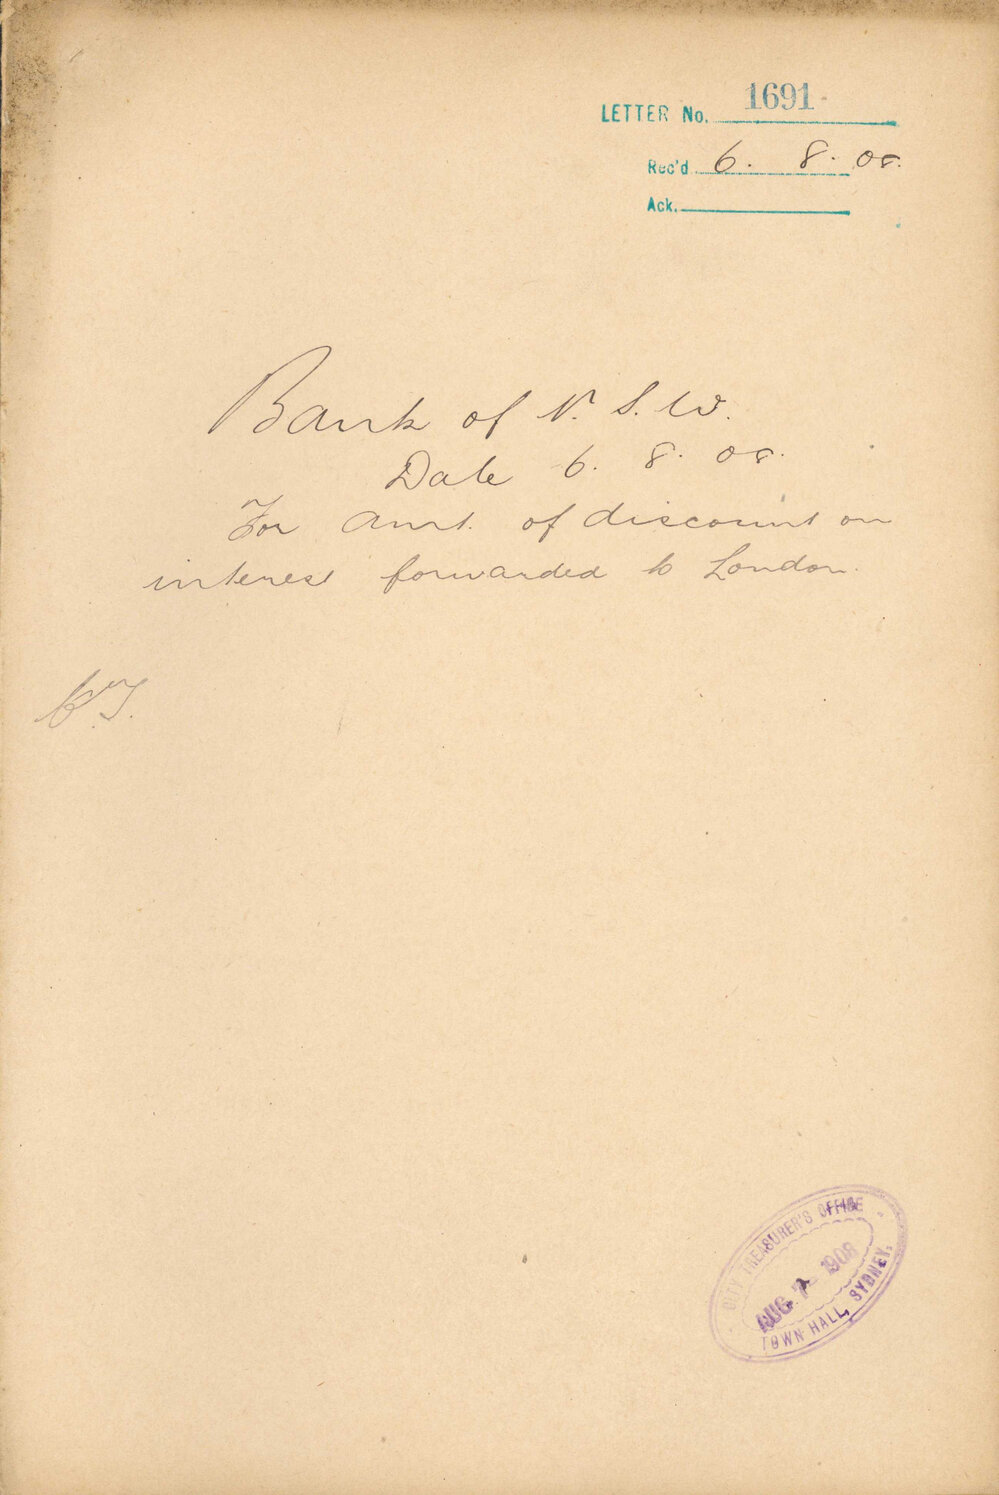 LETTER No. 1691
Rec'd 6. 8. 08.
Ack.
Bank of N. S. W.
Date 6. 8. 08.
For Amt. of discount on
interest forwarded to London.
CITY TREASURER'S OFFICE
AUG. 7 - 1908
TOWN HALL, SYDNEY.